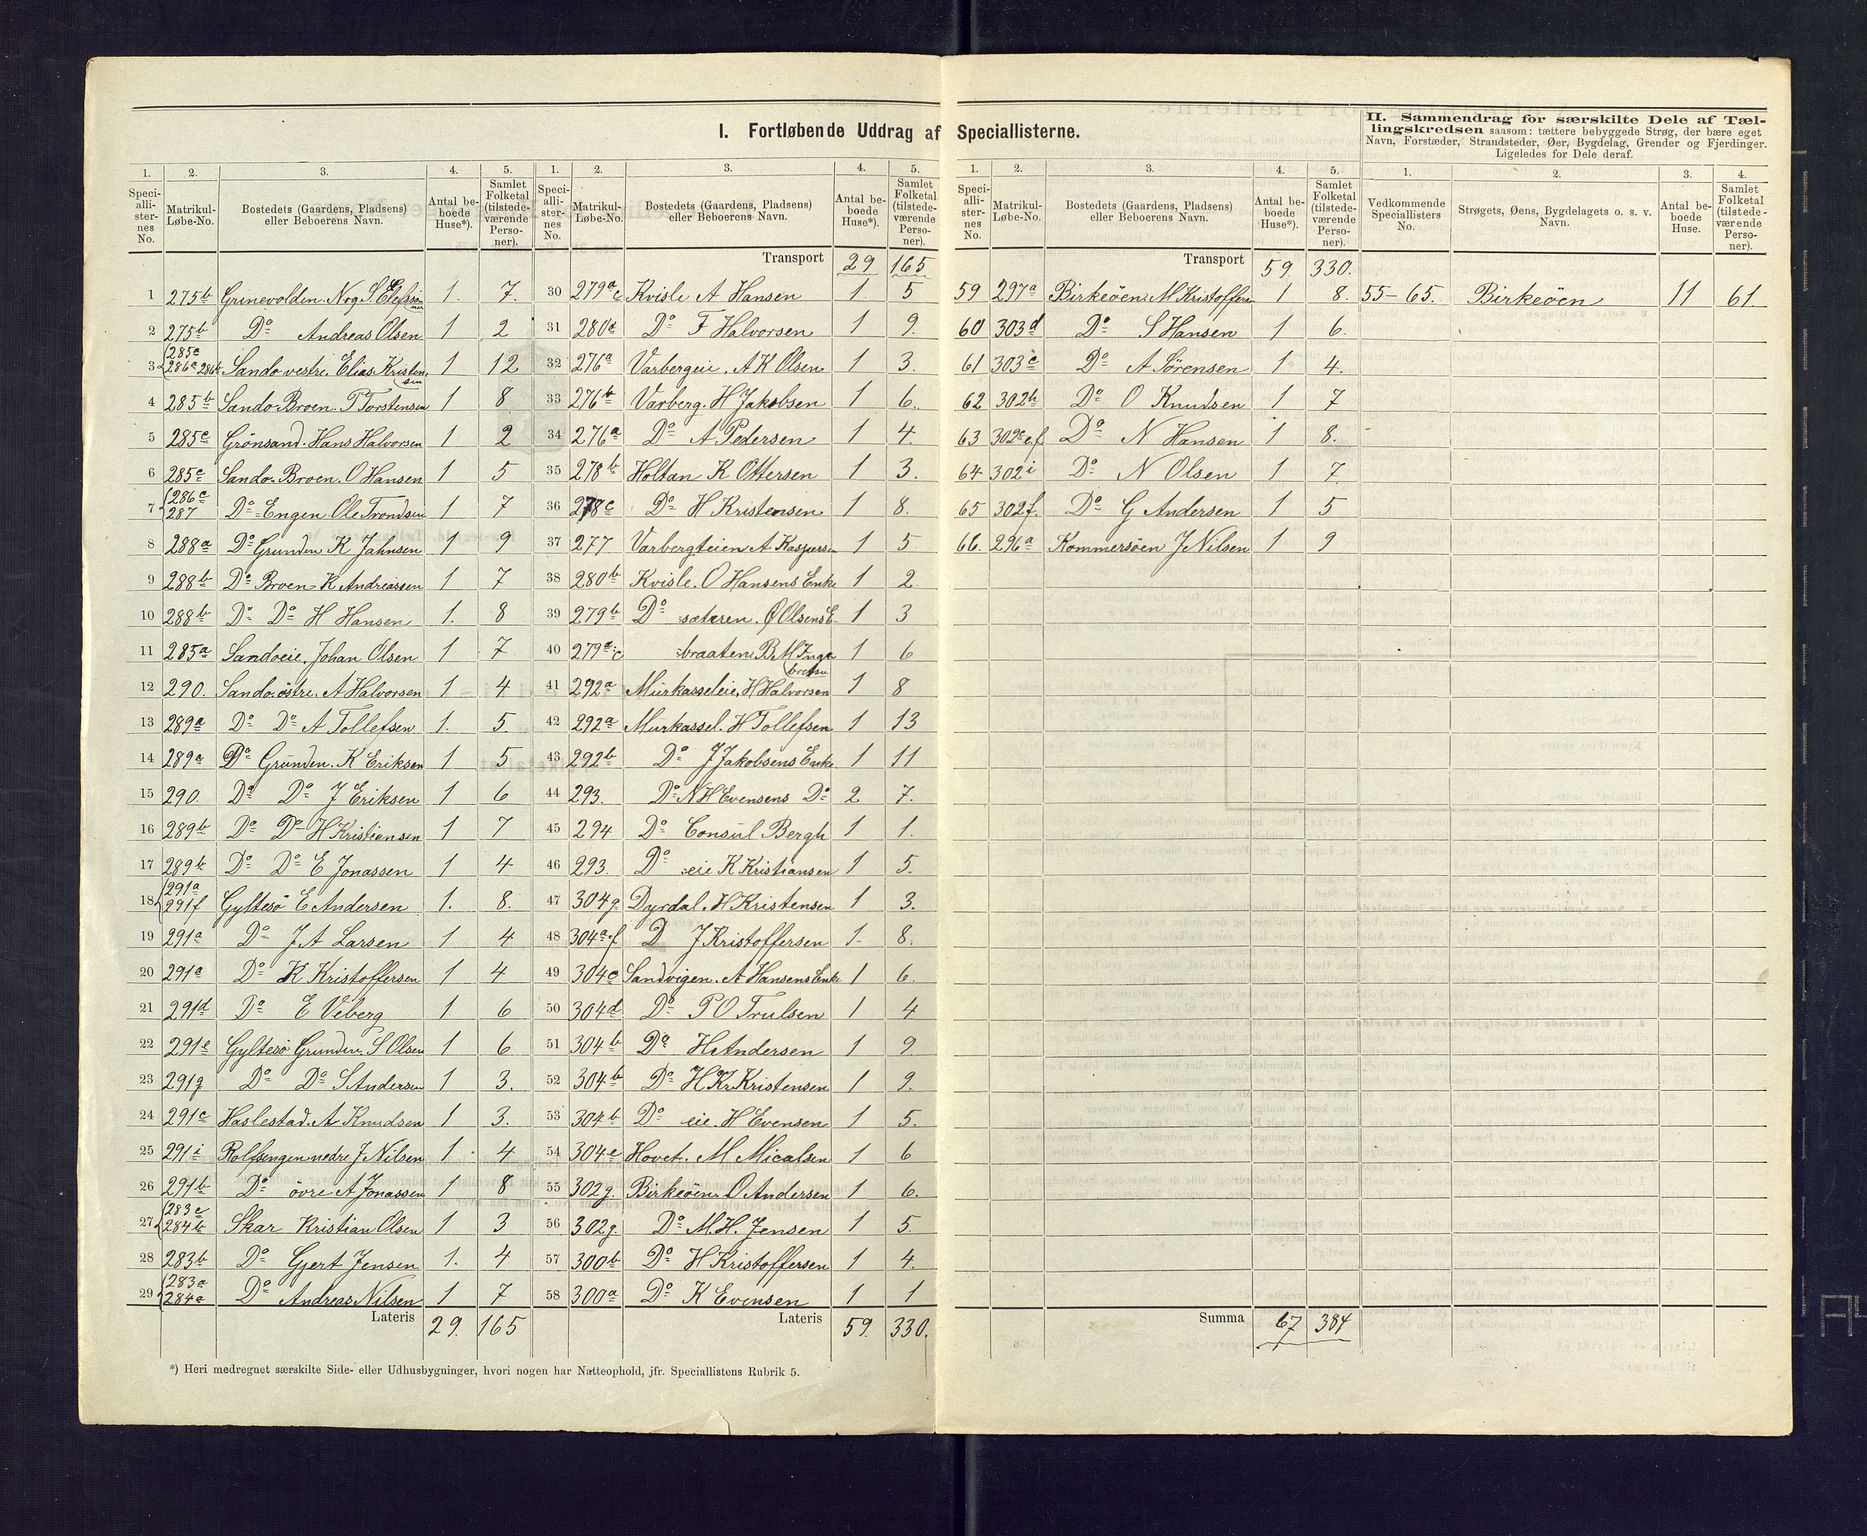 I. Fortløbende Uddrag af Speciallisterne.
II. Sammendrag for særskilte Dele af Tæl-
lingskredsen saasom: tættere bebyggede Strøg, der bære eget
Navn, Forstæder, Strandsteder, Øer, Bygdelag, Grender og Fjerdinger.
Ligeledes for Dele deraf.
1. 2. 3. 4. 5.
Speci-allister-nes No. Matrikul-Løbe-No. Bostedets (Gaardens, Pladsens) eller Beboerens Navn. Antal be-boede Huse*). Samlet Folketal (tilstede-værende Perso-ner).
1 275b Grinevolden. N og S
2 275b Do Andreas Olsen 1 2
3 285c 286a 286b Sando vestre. Elias Kristensen 1 12
4 285b Sando-Broen. T Torstensen 1 8
5 285c Grönsand. Hans Halvorsen 1 2
6 285c Sando-Broen. O Hansen 1 5
7 286c 287 Do-Engen. Ole Trondsen 1 7
8 288a Do Grunden K Jahnsen 1 9
9 288b Do Broen K Andreassen 1 7
10 288b Do Do H Hansen 1. 8
11 285a Sandoeie. Johan Olsen 1 7
12 290. Sando östre. A Halvorsen 1 4
13 289a Do Do A Tollefsen 1. 5.
14 289a Do Grunden. K Eriksen 1 5
15 290. Do Do J Eriksen 1 6
16 289b Do Do H Kristiansen 1 7
17 289b Do Do E Jonassen 1 4
18 291a 291f Gyltesö E Andersen 1. 8.
19 291a Do J A Larsen 1 4
20 291a Do K Kristoffersen 1 4
21 291d Do E Viberg 1 6
22 291e Gyltesö Grunden. S Olsen 1 6
23 291g Do Do S Andersen 1 3.
24 291c Haslestad. A Knudsen 1 3.
25 291i Rolfsengen nedre J Nilsen 1. 4
26 291b Do övre A Jonassen 1 8
27 283c 284b Skar Kristian Olsen 1 3
28 283b Do Gjert Jensen 1. 4
29 283a 284a Do Andreas Nilsen 1 7
Lateris 29. 165
*) Heri medregnet særskilte Side- eller Udhusbygninger, hvori nogen har Natteophold, jfr. Speciallistens Rubrik 5.
1. 2. 3. 4. 5.
Speci-allister-nes No. Matrikul-Løbe-No. Bostedets (Gaardens, Pladsens) eller Beboerens Navn. Antal be-boede Huse*). Samlet Folketal (tilstede-værende Perso-ner).
Transport 29 165
30 279a c Kvisle A Hansen 1. 5
31 280c Do F Halvorsen 1 9.
32 276a Varbergeie. A K Olsen 1 3.
33 276b Varberg. H Jakobsen 1 6.
34 276a Do A. Pedersen 1 4.
35 278b Holtan K Ottersen 1 3.
36 278c Do H Kristensen 1 8.
37 277 Varbergteien A. Kaspersen 1 5
38 280b Kvisle. O Hansens Enke 1 2
39 279b Do -sæteren. Ø Olsens E. 1 3
40 279a.c -braaten B M Ingebretsen 1 6
41 292a Murkasseleie. H Halvorsen 1 8
42 292a Murkassel. H Tollefsen 1 13
43 292b Do J Jakobsens Enke 1 11
44 293. Do N H Evensens Do 2 7.
45 294 Do Consul Bergh 1 1.
46 293. Do -eie K Kristiansen 1 5.
47 304g. Dyrdal. H Kristensen 1 3.
48 304a.f D J Kristoffersen 1 8.
49 304c Sandvigen. A Hansens Enke 1 6.
50 304d Do P O Trulsen 1 4
51 304b Do H Andersen 1 9
52 304b Do H Kr Kristensen 1 9.
53 304b Do eie. H Evensen 1 5.
54 304e Hovet. M Micalsen 1 6
55 302g. Birkeöen. O Andersen 1 6.
56 302g. Do M. H. Jensen 1 5.
57 300b Do H Kristoffersen 1 4.
58 300a Do K Evensen 1 1
Lateris 59. 330.
1. 2. 3. 4. 5.
Speci-allister-nes No. Matrikul-Løbe-No. Bostedets (Gaardens, Pladsens) eller Beboerens Navn. Antal be-boede Huse*). Samlet Folketal (tilstede-værende Perso-ner).
Transport 59. 330.
59 297a Birkeöen. M Kristoffersen 1 8.
60 303d Do S Hansen 1 6.
61 303c Do A Sørensen 1 4.
62 302h Do O Knudsen 1 7
63 302c.f Do N Hansen 1 8.
64 302i Do N Olsen 1 7
65 302f. Do G Andersen 1 5
66. 296a Kommersöen J Nilsen 1 9
Summa 67 384
1. 2. 3. 4.
Vedkommende Speciallisters No. Strøgets, Øens, Bygdelagets o. s. v. Navn. Antal be-boede Huse. Samlet Folketal (tilstede-værende Perso-ner).
55-65. Birkeöen 11 61